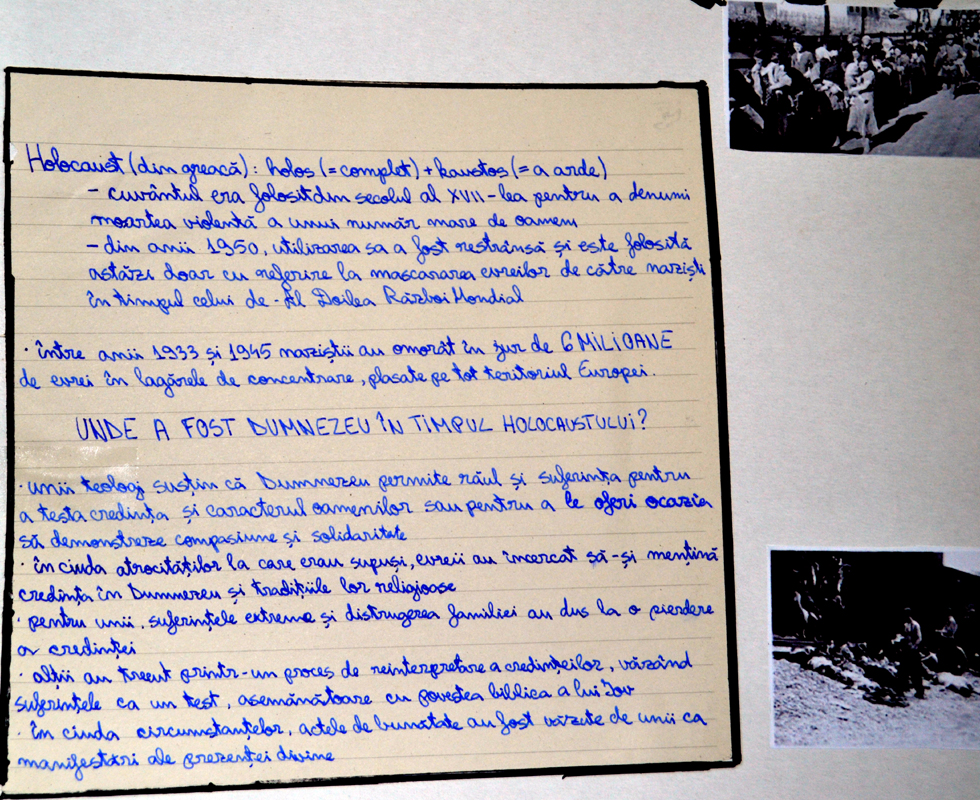 Holocaust (din greacă): holos (=complet) + kaustos (= a arde)
- cuvântul era folosit din secolul al XVII-lea pentru a denumi
moartea violentă a unui număr mare de oameni
- din anii 1950, utilizarea sa a fost restrânsă și este folosită
astăzi doar cu referire la mascararea evreilor de către naziști
în timpul celui de-Al Doilea Război Mondial
· între anii 1933 și 1945 naziștii au omorât în jur de 6 MILIOANE
de evrei în lagărele de concentrare, plasate pe tot teritoriul Europei.
UNDE A FOST DUMNEZEU ÎN TIMPUL HOLOCAUSTULUI?
· unii teologi susțin că Dumnezeu permite răul și suferința pentru
a testa credința și caracterul oamenilor sau pentru a le oferi ocazia
să demonstreze compasiune și solidaritate
· în ciuda atrocităților la care erau supuși, evreii au încercat să-și mențină
credința în Dumnezeu și tradițiile lor religioase
· pentru unii, suferințele extreme și distrugerea familiei au dus la o pierdere
a credinței
· alții au trecut printr-un proces de reinterpretare a credințeilor, văzând
suferințele ca un test, asemănătoare cu povestea biblica a lui Iov
· în ciuda circumstanțelor, actele de bunătate au fost văzute de unii ca
manifestări ale prezenței divine